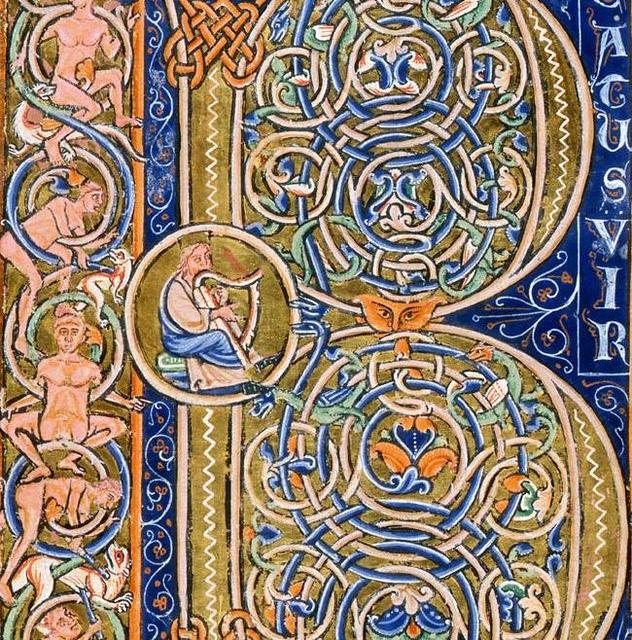 B
ATUS VIR